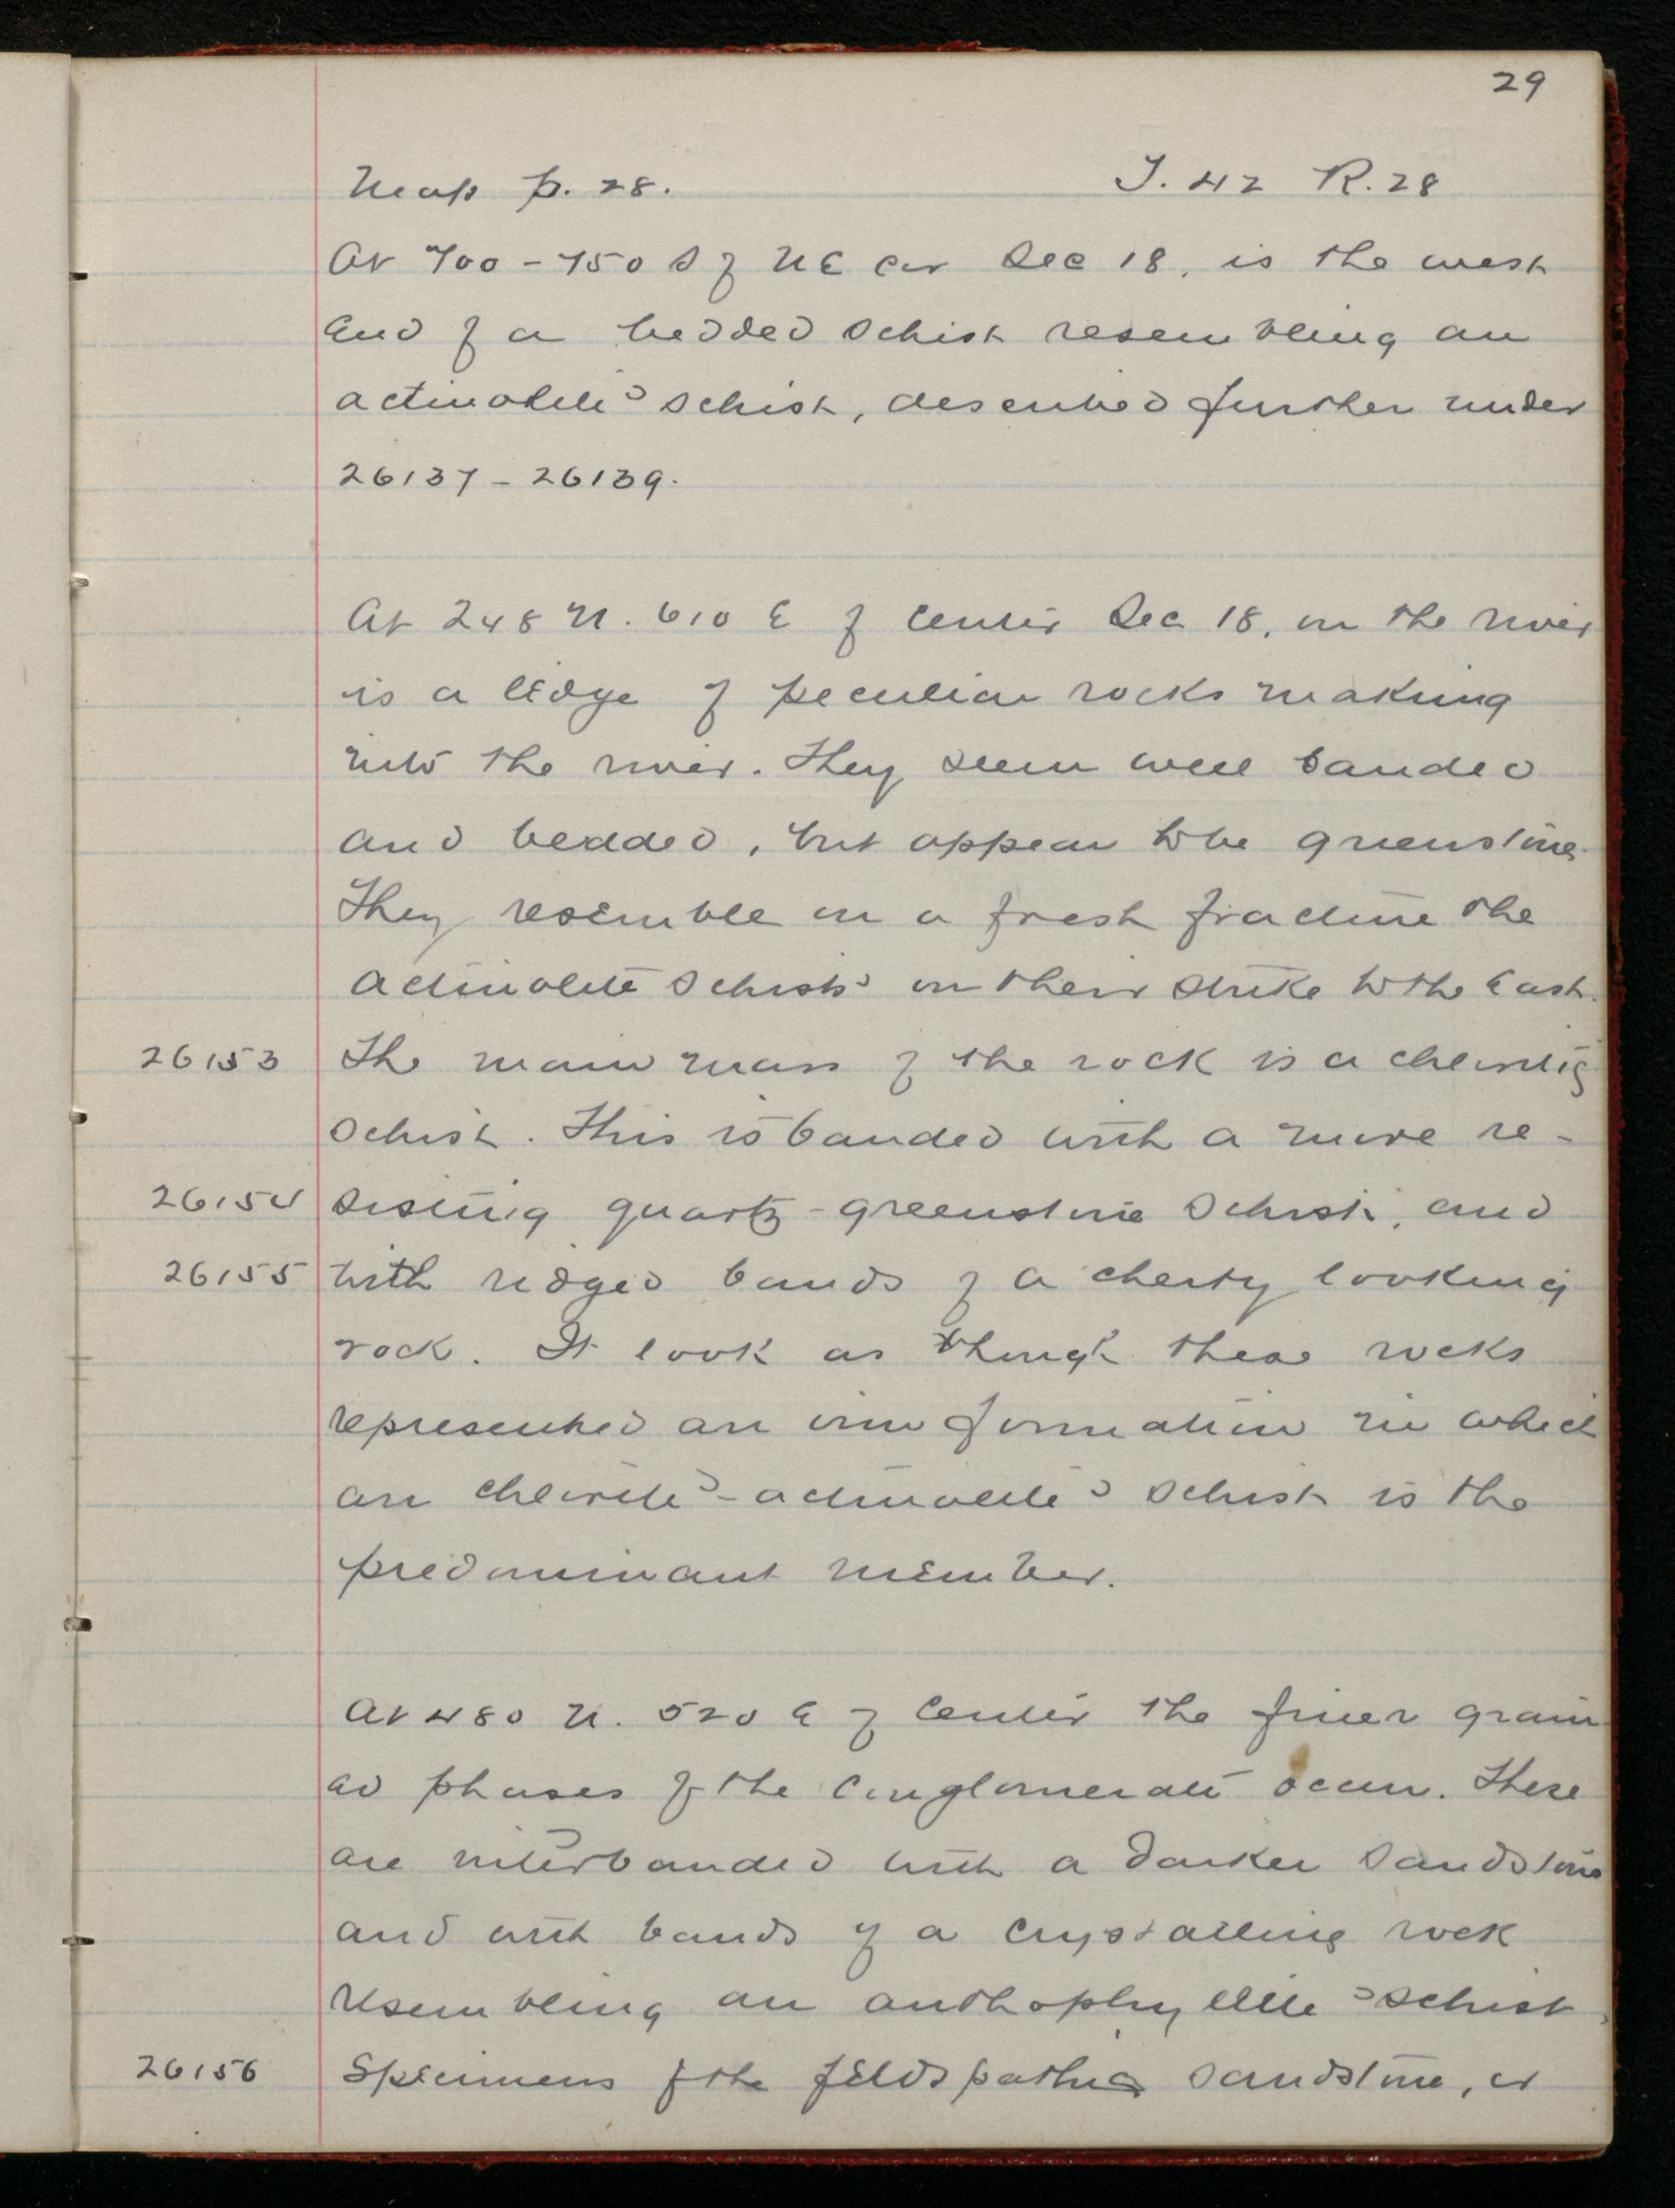 29
Map p. 28. T. 42 R. 28
At 700-750 S of NE cor Sec 18, is the west
end of a bedded schist resembling an
actinolite schist, described further under
26137 - 26139.
At 248 N. 610 E of center Sec 18, on the river
is a ledge of peculiar rocks making
into the river. They seem well banded
and bedded, but appear to be greenstone.
They resemble on a fresh fracture the
actinolite schists on their strike to the East.
26153 The main mass of the rock is a chloritic
schist. This is banded with a more re-
26154 sisting quartz-greenstone schist, and
26155 with ridged bands of a cherty looking
rock. It look as though these rocks
represented an iron formation in which
an chlorite-actinolite schist is the
predominant member.
At 480 N. 520 E of center the finer grain
ed phases of the conglomerate occur. These
are interbanded with a darker sandstone
and with bands of a crystalline rock
resembling an anthophyllite schist.
26156 Specimens of the feldspathic sandstone, or